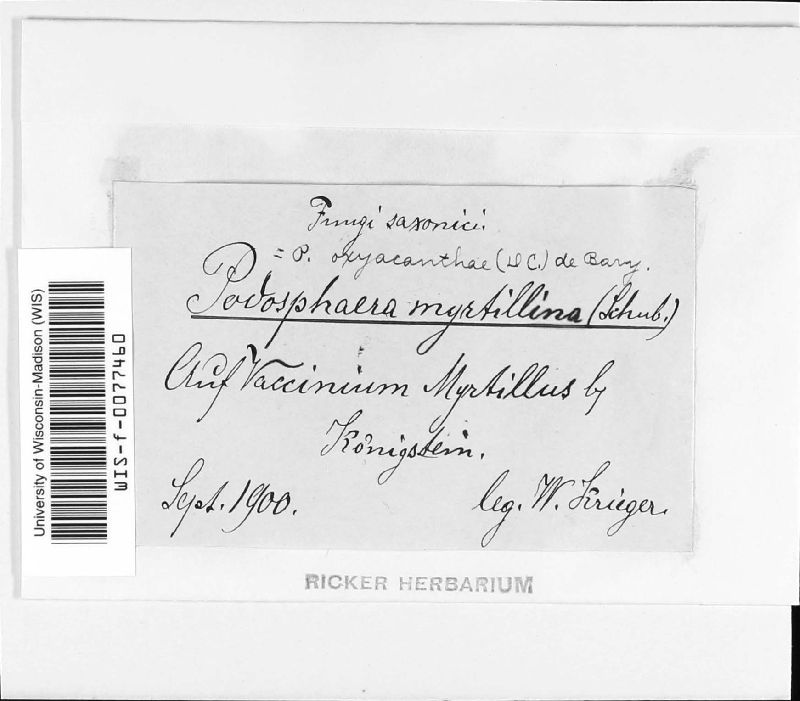 Fungi saxonici.
= P. oxyacanthae (DC.) de Bary.
Podosphaera myrtillina (Schub.)
Auf Vaccinium Myrtillus by
Königstein.
Sept. 1900. leg. W. Krieger.
RICKER HERBARIUM
University of Wisconsin-Madison (WIS)
WIS-f-0077460